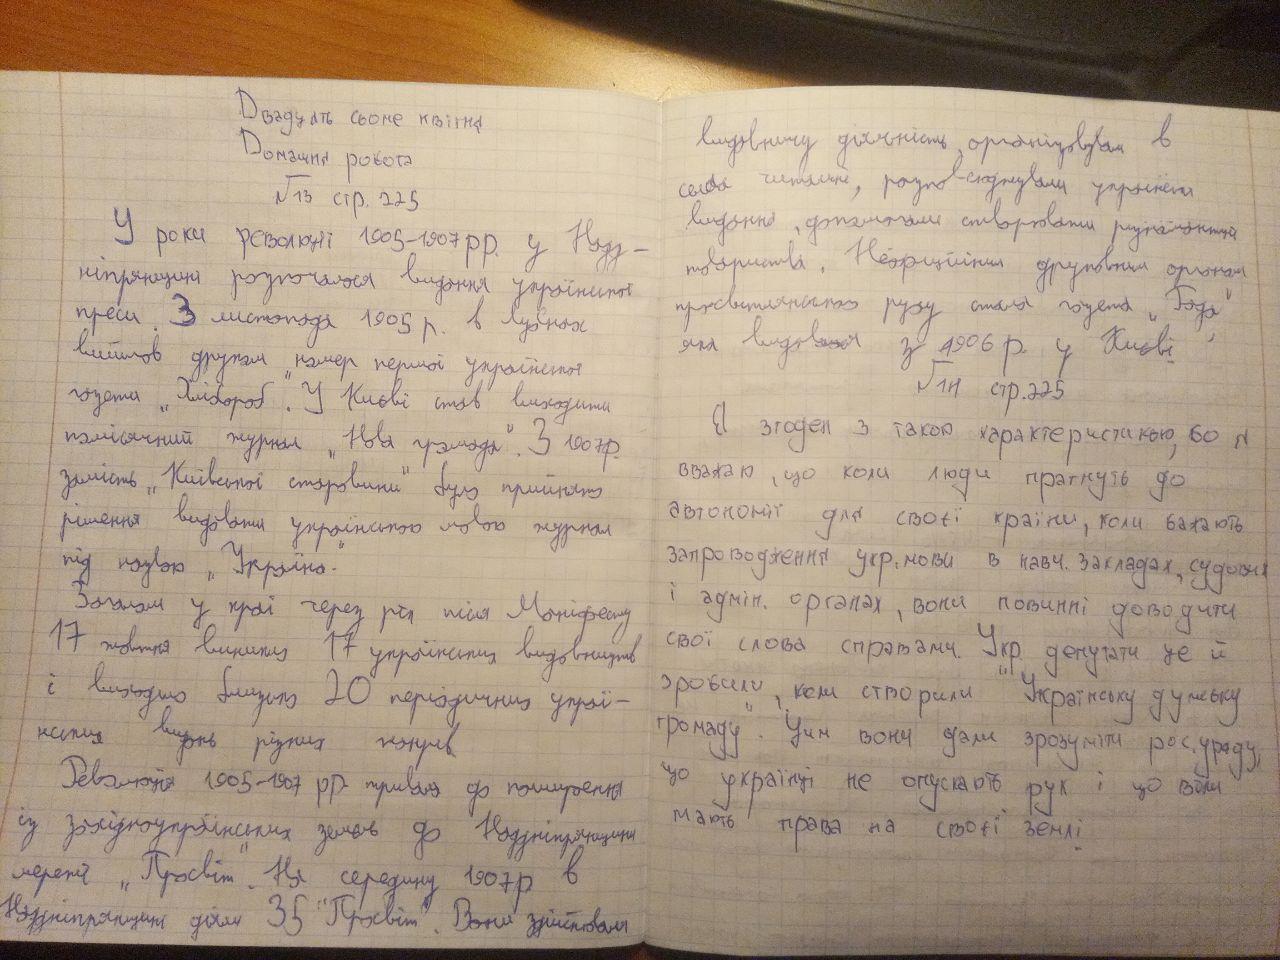 Двадцять сьоме квітня
Домашня робота
№13 стр. 225
У роки революції 1905-1907 рр. у Надд-
ніпрянщині розпочалося видання української
преси. 3 листопада 1905 р. в Лубнах
вийшов друком номер першої української
газети "Хлібороб". У Києві став виходити
помісячний журнал "Нова громада". З 1907р.
замість "Київської старовини" було прийнято
рішення видавати українською мовою журнал
під назвою "Україна".
Загалом у краї через рік після Маніфесту
17 жовтня виникло 17 українських видавництв
і виходило близько 20 періодичних украї-
нських видань різних напрямів
Революція 1905-1907 рр. привела до поширення
із західноукраїнських земель до Наддніпрянщини
мережі "Просвіт". На середину 1907р в
Наддніпрянщині діяли 35 "Просвіт". Вони здійснювали
видавничу діяльність, організовували в
селах читальні, розпов-сюджували українські
видання, допомагали створювати
товариства. Неофіційним друкованим органом
просвітянського руху стала газета "Рада",
яка видавалася з 1906 р. у Києві.
№14 стр.225
Я згоден з такою характеристикою, бо я
вважаю, що коли люди прагнуть до
автономії для своєї країни, коли бажають
запровадження укр.мови в навч. закладах, судових
і адмін. органах, вони повинні доводити
свої слова справами. Укр. депутати це й
зробили, коли створили "Українську думську
громаду". Цим вони дали зрозуміти рос.уряду,
що українці не опускають рук і що вони
мають права на своєї землі.